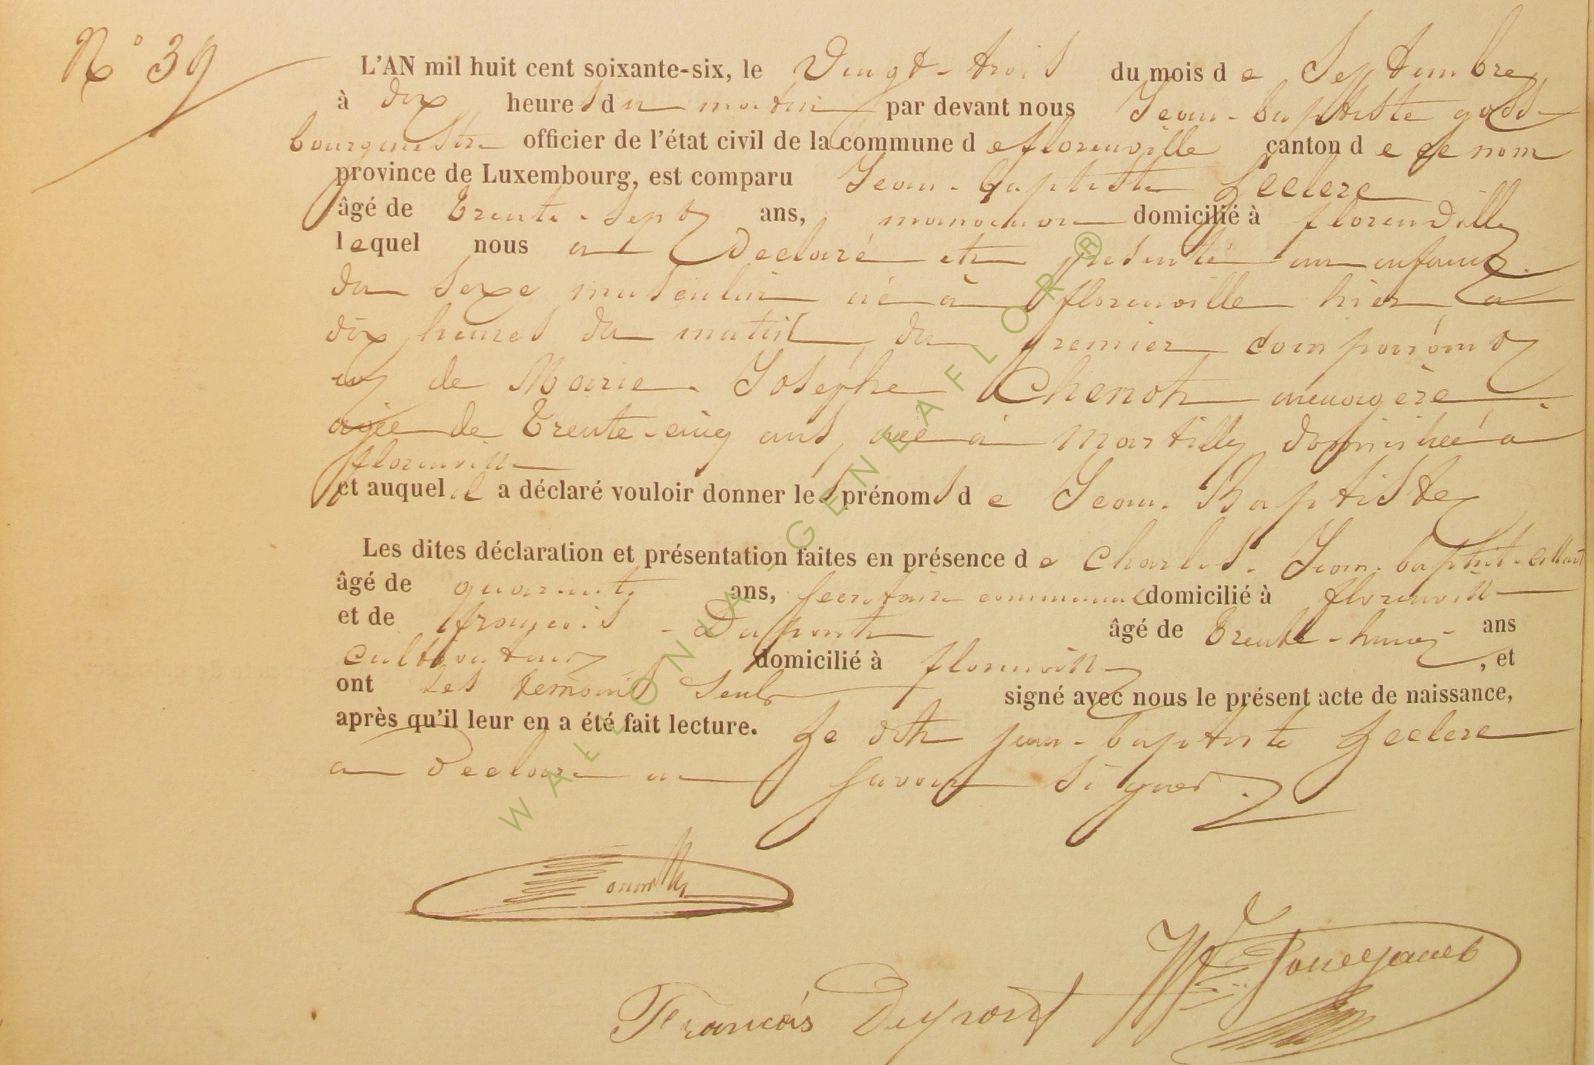 N° 39
L'AN mil huit cent soixante-six, le Vingt-trois du mois de Septembre
à dix heures du matin par devant nous Jean-baptiste
bourgmestre officier de l'état civil de la commune de florenville canton de ce nom
province de Luxembourg, est comparu Jean-baptiste Leclere
âgé de Trente-sept ans, manoeuvre domicilié à florenville
lequel nous a Declaré et présenté un enfant
du sexe masculin né à florenville hier a
dix heures du matin, du premier comparant
de Marie Josephe Chenot menagère
agée de Trente-cinq ans, née à Martilly domiciliée à
florenville
et auquel il a déclaré vouloir donner les prénoms de Jean-Baptiste
Les dites déclaration et présentation faites en présence de Charles-Jean-baptiste
âgé de quarante ans, secretaire communal domicilié à florenville
et de françois Dupont âgé de Trente-neuf ans
cultivateur domicilié à florenville, et
ont les temoins seuls signé avec nous le présent acte de naissance,
après qu'il leur en a été fait lecture. Le dit jean-baptiste Leclere
a Declaré ne savoir signer.
François Dupont
WALLONIA-GENEAFLOR®